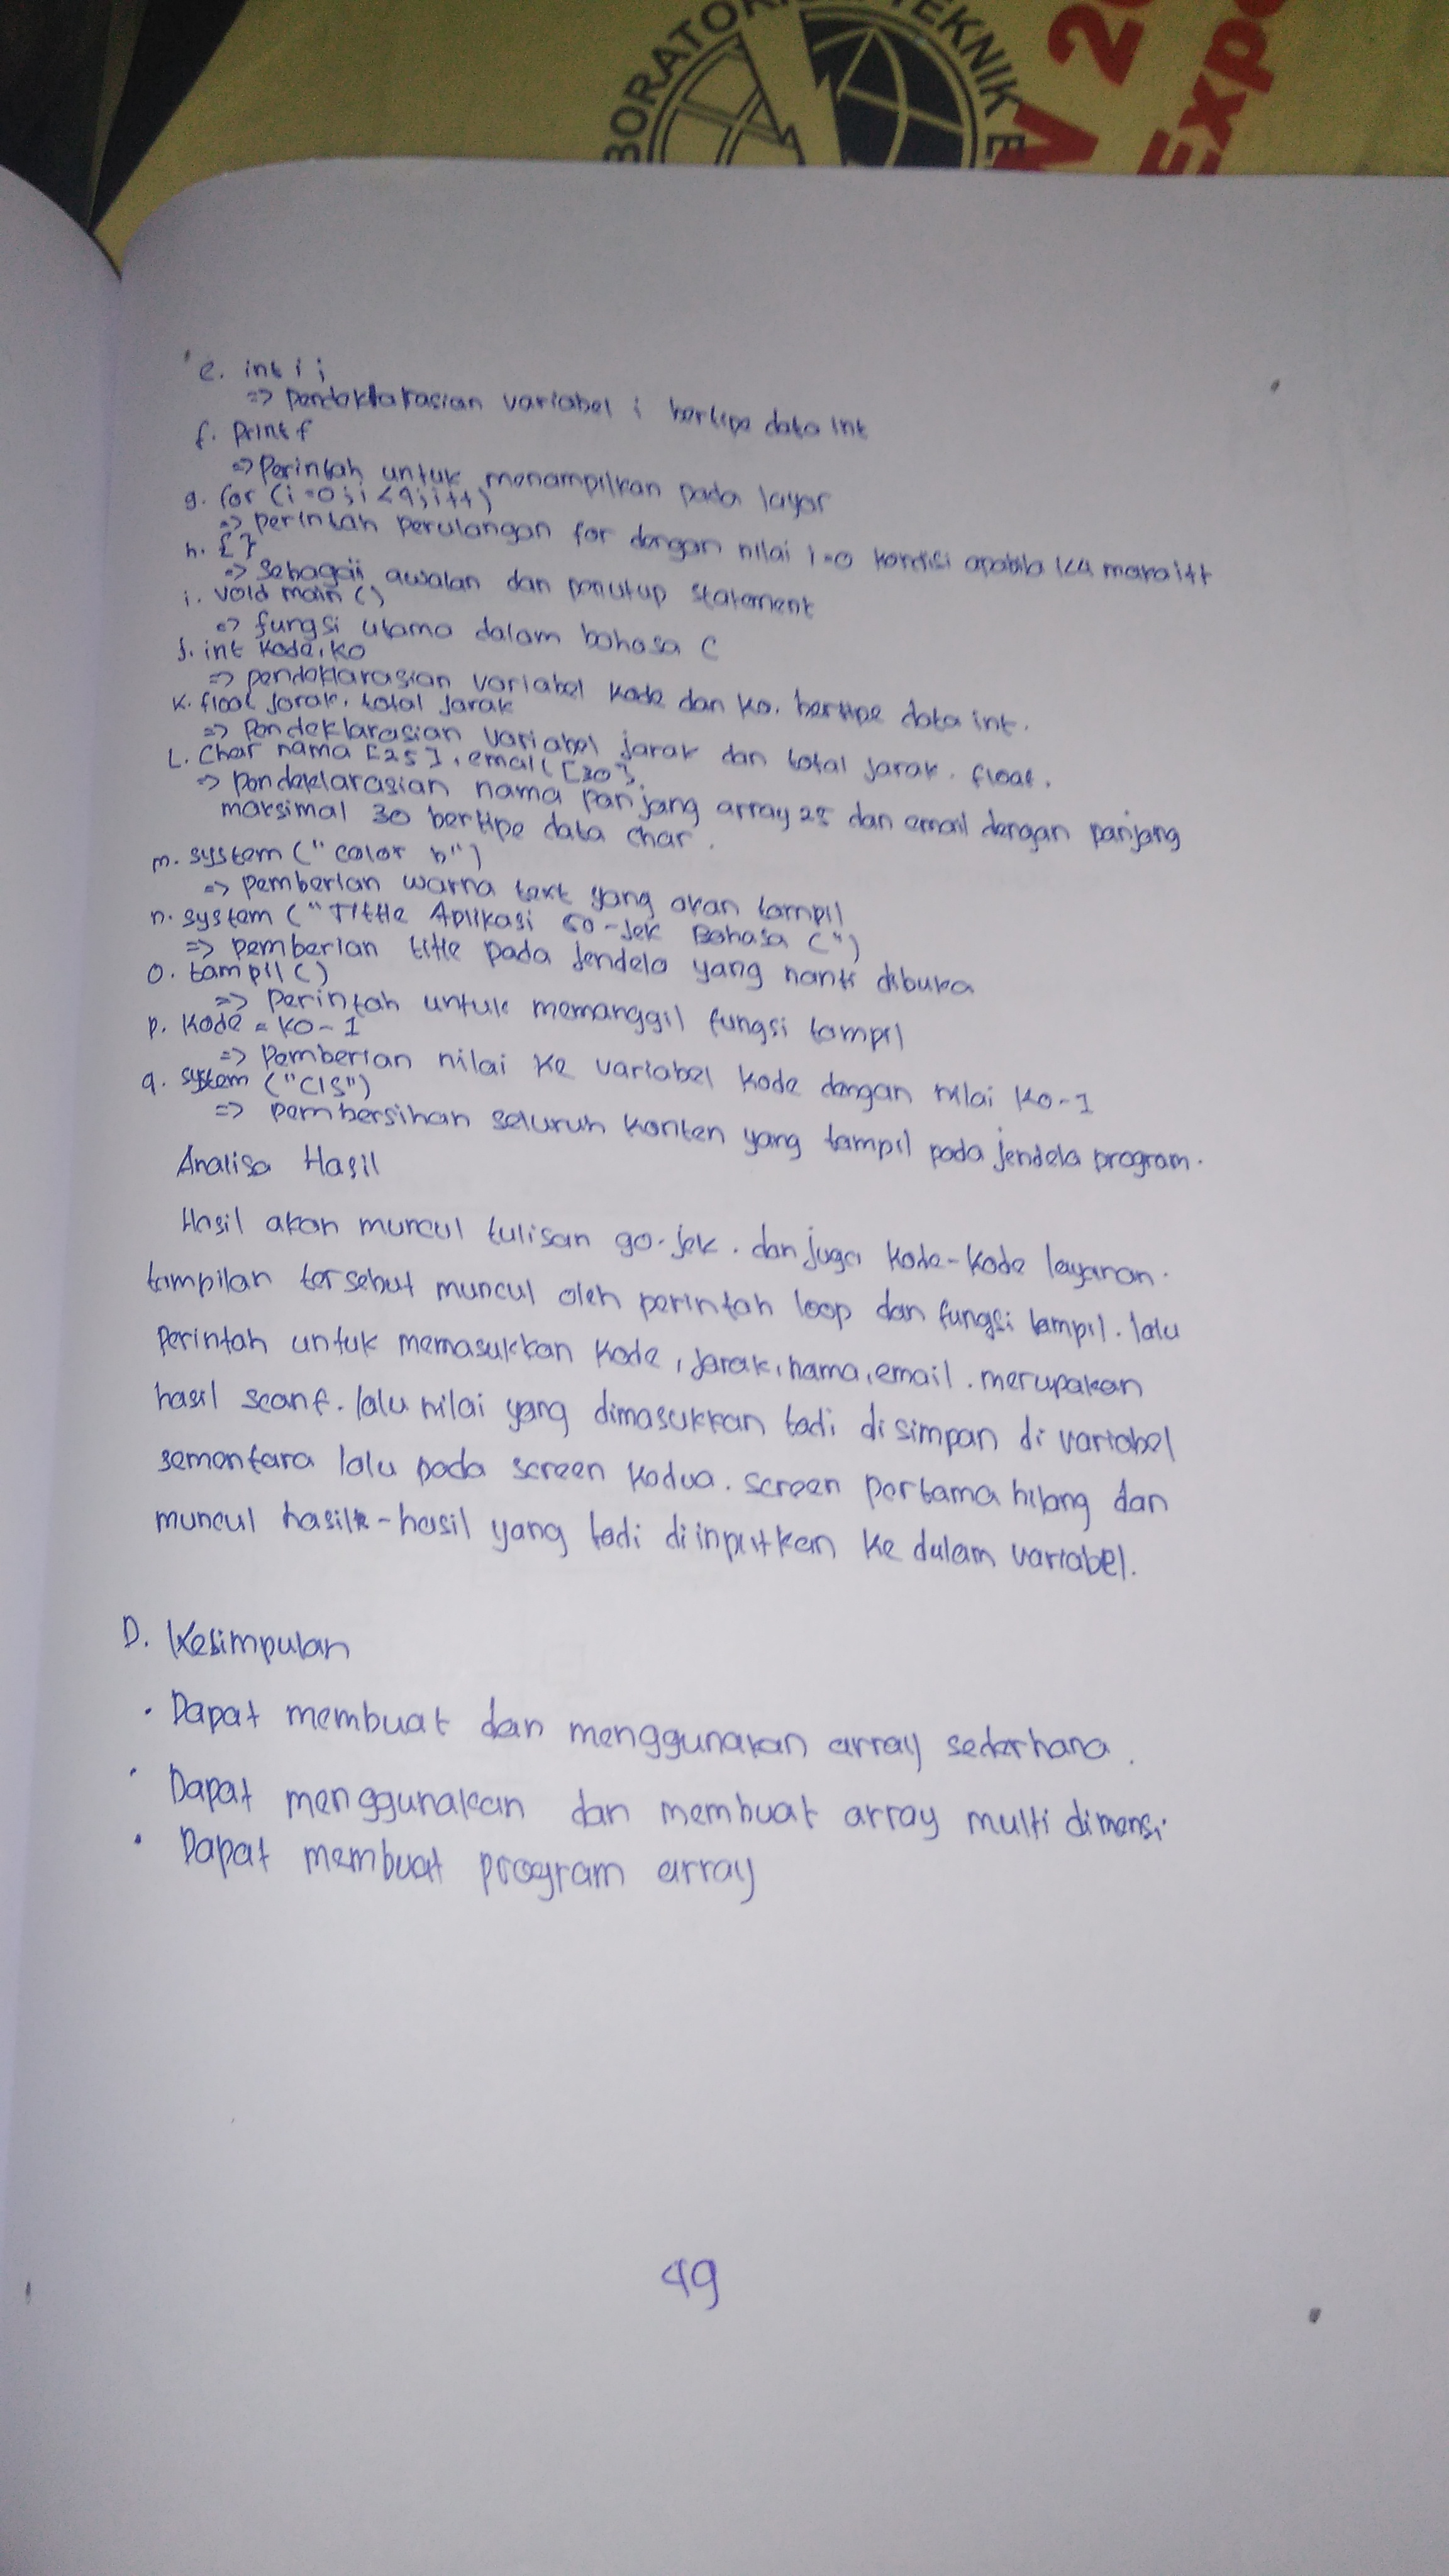 BORATOR
TEKNIK E
N 20
Expo
e. int i ;
=> pendeklarasian variabel i bertipe data int
f. printf
=> Perintah untuk menampilkan pada layar
g. for (i=0; i<4; i++)
=> perintah perulangan for dengan nilai i=0 kondisi apabila i<4 maka i++
h. { }
=> sebagaii awalan dan penutup statement
i. void main ()
=> fungsi utama dalam bahasa C
j. int kode, ko
=> pendeklarasian variabel kode dan ko. bertipe data int.
k. float jarak, total jarak
=> Pendeklarasian variabel jarak dan total jarak. float.
L. Char nama [25], email [30].
=> pendeklarasian nama panjang array 25 dan email dengan panjang
maksimal 30 bertipe data char.
m. system (" color b")
=> pemberian warna text yang akan tampil
n. system ("Tittle Aplikasi Go-Jek Bahasa C")
=> pemberian title pada Jendela yang nanti dibuka
o. tampil ()
=> perintah untuk memanggil fungsi tampil
p. Kode = KO-1
=> Pemberian nilai ke variabel kode dengan nilai KO-1
q. system ("CIS")
=> pembersihan seluruh konten yang tampil pada jendela program.
Analisa Hasil
Hasil akan muncul tulisan go-jek. dan juga kode-kode layanan.
tampilan tersebut muncul oleh perintah loop dan fungsi tampil. lalu
Perintah untuk memasukkan kode, jarak, nama, email. merupakan
hasil scanf. lalu nilai yang dimasukkan tadi disimpan di variabel
sementara lalu pada screen kedua. screen pertama hilang dan
muncul hasilk-hasil yang tadi diinputkan ke dalam variabel.
D. Kesimpulan
· Dapat membuat dan menggunakan array sederhana.
· Dapat menggunakan dan membuat array multi dimensi
· Dapat membuat program array
49